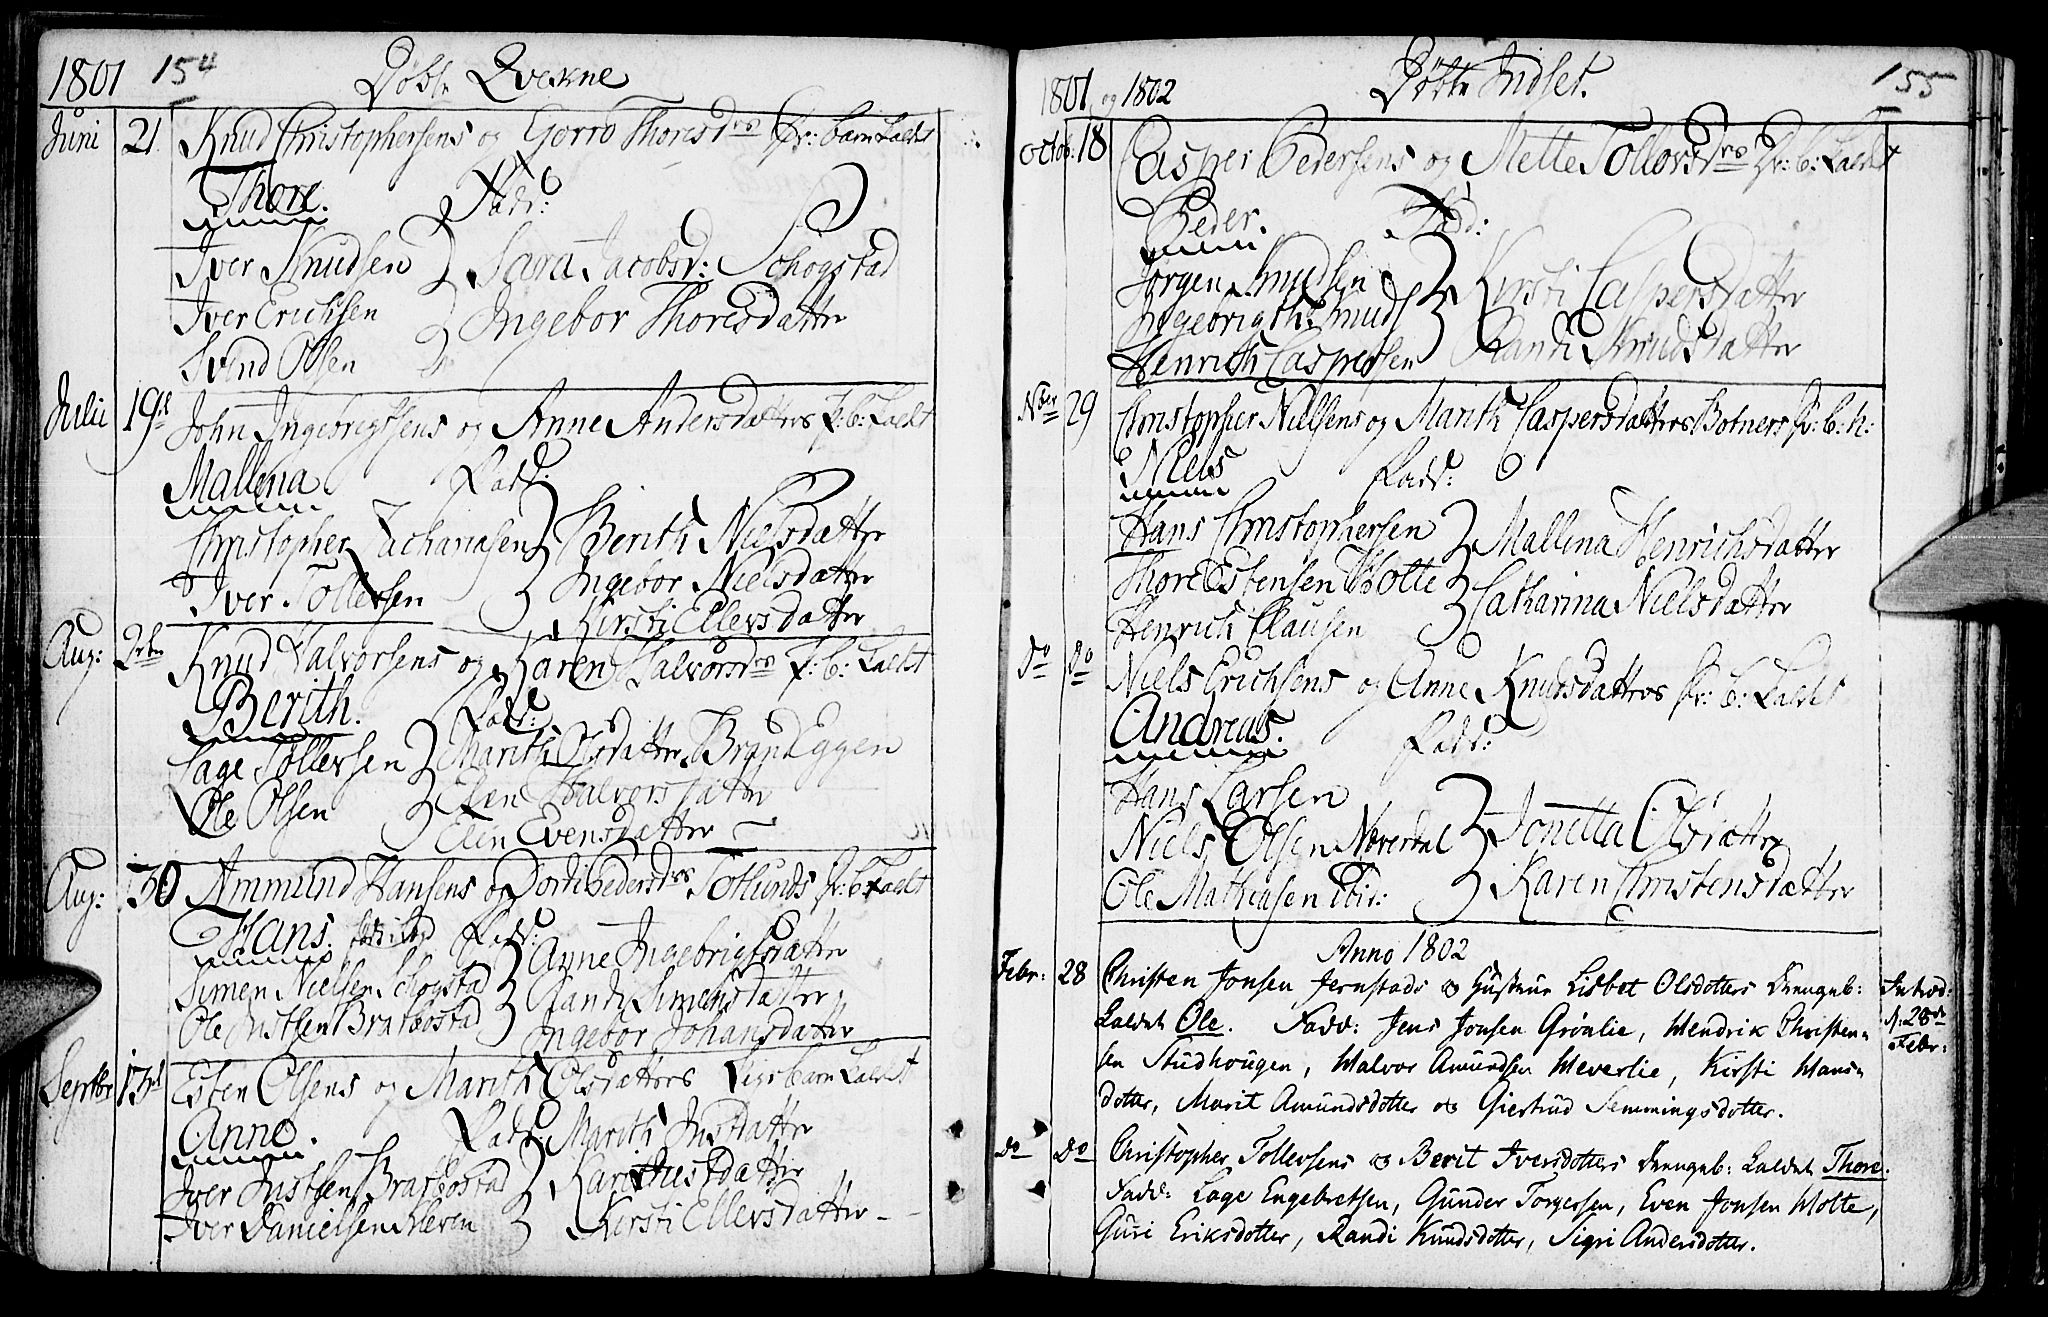 1801 154 Døbte Qvekne
Juni 21. Knud Christophersens og Gorro Thoresdrs Dr: barn kaldt
Thore. Fadr:
Iver Knudsen Sara Jacobsd: Schogstad
Iver Erichsen Ingebor Thoresdatter
Svend Olsen
Julii 19de John Ingebrigtsens og Anne Andersdatters P: b: kaldt
Mallena Fadd:
Christopher Zachariasen Berith Nielsdatter
Iver Tollefsen Ingebor Nielsdatter
Kirsti Ellevsdatter
Aug: 2den Knud Halvorsens og Karen Halvorsdrs P: b: kaldt
Berith. Fadd:
Lage Tollevsen Marith Olsdatter BrandEggen
Ole Olsen Elen Halvorsdatter
Elin Evensdatter
Aug: 30 Ammund Hansens og Dordi Pedersdrs Totlunds Dr: b: kaldt
Hans. Fadd:
Simen Nielsen Schogstad Anne Ingebrigtsdatter
Ole Justsen Bratbostad Randi Simensdatter
Ingebor Johansdatter
Septbr 13de Esten Olsens og Marith Olsdatters Pigebarn kaldet
Anne. Fadd: Marith Jnsdatter
Iver Justsen Bratbostad Kari Justdatter
Iver Danielsen Kleven Kirsti Ellevsdatter
1801 og 1802 Døbte Indset. 155
Octob: 18 Casper Pedersens og Mette Tollovsdrs Dr: b: kaldet
Peder. Fadd:
Jørgen Knudsen Kirsti Caspersdatter
Ingebrigth Knuds Randi Knudsdatter
Henrich Caspersen
Nber 29 Christopher Nielsens og Marith Caspersdatters Botners Dr: b: k:
Niels Fadd:
Hans Christophersen Mallena Henrichsdatter
Thore Estensen Holte Catharina Nielsdatter
Henrich Clausen
do do Niels Erichsens og Anne Knudsdatters Dr: b: kaldet
Andreas. Fadd:
Hans Larsen
Niels Olsen Noverdal Jonetta Olsdatter
Ole Mathiasen ibid: Karen Christensdatter
Anno 1802
Febr: 28 Christen Jonsen Jernstads og Hustrue Lisbet Olsdotters Drengeb: Introd:
kaldet Ole. Fadd: Jens Jonsen Grønlie, Hendrik Christen- d: 28de
sen Studhougen, Halvor Amundsen Heverlie, Kirsti Hans- Febr:
dotter, Marit Amundsdotter og Giertrud Semmingsdotter.
do do Christopher Tollevsens og Berit Iversdotters Drengeb: kaldet Thore.
Fadd: Lage Engebretsen, Gunder Torgersen, Even Jonsen Holte,
Guri Eriksdotter, Randi Knudsdotter, Sigri Andersdotter.